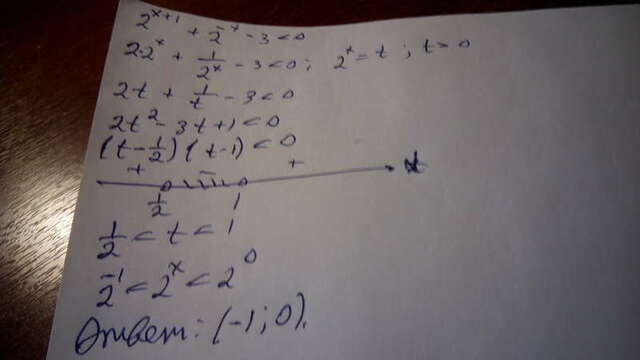 2^{x+1} + 2^{-x} - 3 < 0
2·2^x + 1/2^x - 3 < 0; 2^x = t; t > 0
2t + 1/t - 3 < 0
2t² - 3t + 1 < 0
(t - 1/2)(t - 1) < 0
+ - + t
1/2 1
1/2 < t < 1
2^{-1} < 2^x < 2^0
Ответ: (-1; 0).